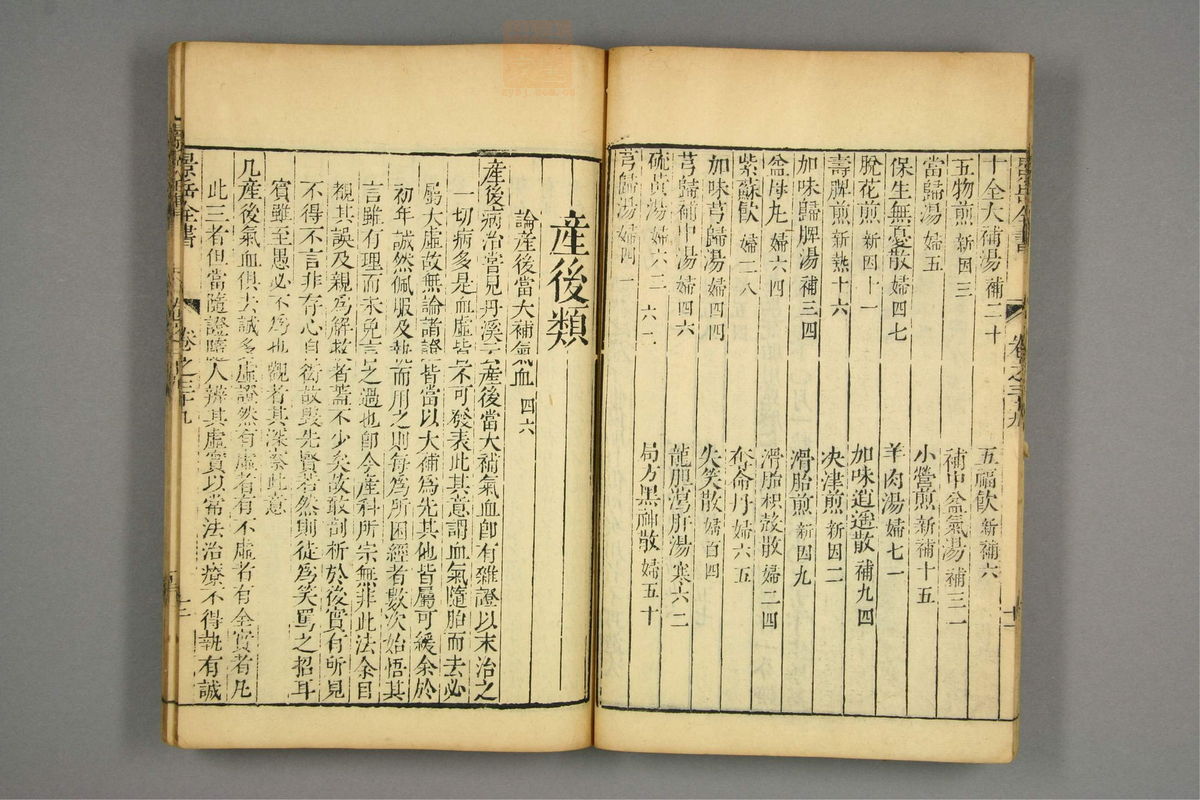 十全大補湯 補二十
五福飲 新補六
五物煎 新因三
補中益氣湯 補三一
當歸湯 婦五
小營煎 新補十五
保生無憂散 婦四七
羊肉湯 婦七一
脫花煎 新因十一
加味逍遥散 補九四
壽脾煎 新熱十六
决津煎 新因二
加味歸脾湯 補三四
滑胎煎 新因九
益母丸 婦六四
滑胎枳殻散 婦二四
紫蘇飲 婦二八
奪命丹 婦六五
加味芎歸湯 婦四四
失笑散 婦百四
芎歸補中湯 婦四六
龍胆瀉肝湯 寒六三
硫黃湯 婦六三
局方黑神散 婦五十
芎歸湯 婦四一
産後類
論産後當大補氣血 四六
産後病治嘗見丹溪云産後當大補氣血卽有雜證以末治之
一切病多是血虛皆不可發表此其意謂血氣隨胎而去必
屬大虛故無論諸證皆當以大補爲先其他皆屬可緩余於
初年誠然佩服及執而用之則每爲所困經者數次始悟其
言雖有理而未免言之過也卽今産科所宗無非此法余目
覩其誤及親爲解救者蓋不少矣故敢剖析於後實有所見
不得不言非存心自衒故毁先賢若然則徒爲笑罵之招耳
賓雖至愚必不爲也觀者其深察此意
凡産後氣血俱去誠多虛證然有虛者有不虛者有全實者凡
此三者但當隨證隨人辨其虛實以常法治療不得執有誠
景岳全書
卷之三十九